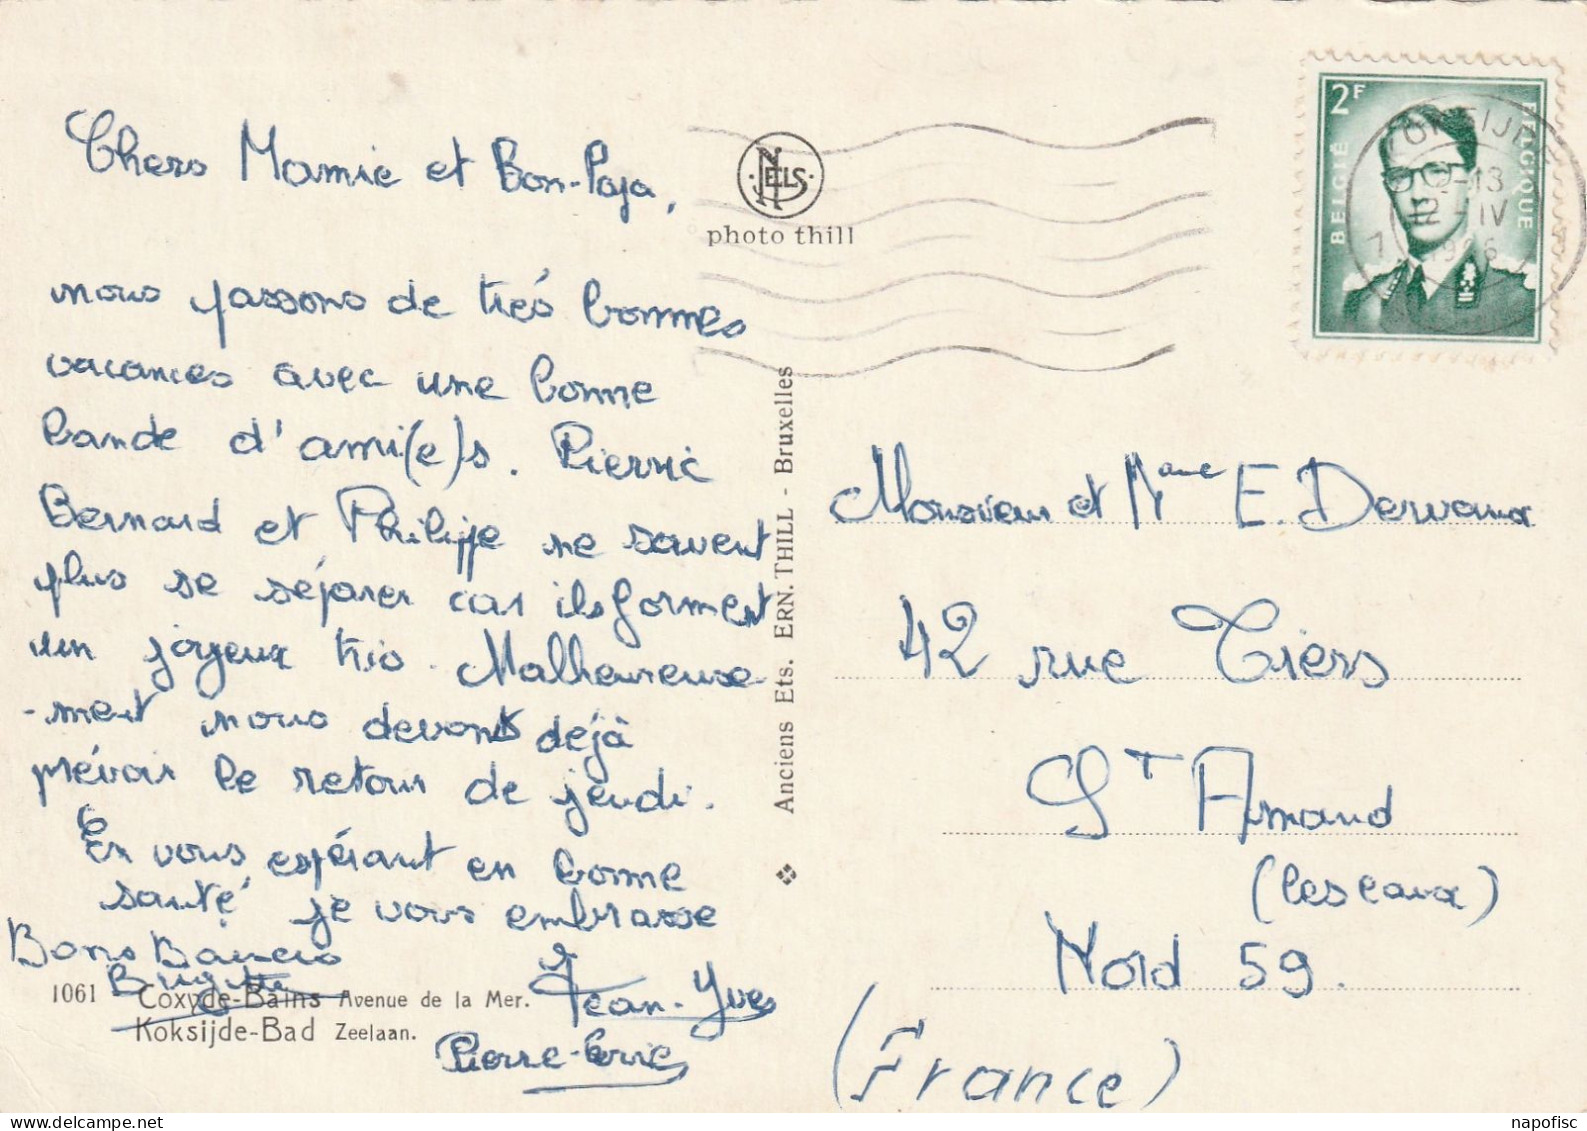 Chers Mamie et Bon-Papa,
nous passons de très bonnes
vacances avec une bonne
bande d'ami(e)s. Pierric
Bernard et Philippe ne savent
plus se séparer car ils forment
un joyeux trio. Malheureuse-
-ment nous devons déjà
prévoir le retour de jeudi.
En vous espérant en bonne
santé je vous embrasse
Bons Baisers
Brigitte
Jean-Yves
Pierre-Eric
1061 Coxyde-Bains Avenue de la Mer.
Koksijde-Bad Zeelaan.
NELS
photo thill
Anciens Ets. ERN. THILL - Bruxelles
2F
BELGIË BELGIQUE
KOKSIJDE
12-IV
Monsieur et Mme E. Dervaux
42 rue Thiers
ST Amand
(les eaux)
Nord 59.
(France)
napofisc